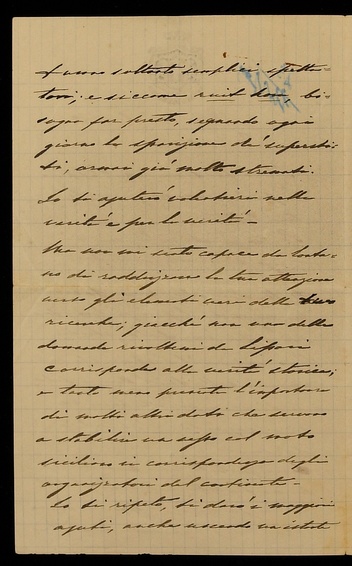 furono soltanto semplici spetta-
tori; e siccome ruit hora, bi-
sogna far presto, segnando ogni
giorno la sparizione dei supersti-
ti, ormai già molto stremati.
Io ti aiuterò volentieri nella
verità e per la verità —
Ma non mi sento capace da lonta-
no di raddrizzare la tua attenzione
verso gli elementi veri delle
ricerche; giacché non una delle
domande rivoltemi da Lipari
corrisponde alla verità storica;
e tanto meno presenta l'importanza
di molti altri dati che servono
a stabilire un nesso col moto
siciliano in corrispondenza degli
organizzatori del continente —
Io ti ripeto, ti darò i maggiori
aiuti, anche uscendo un istante